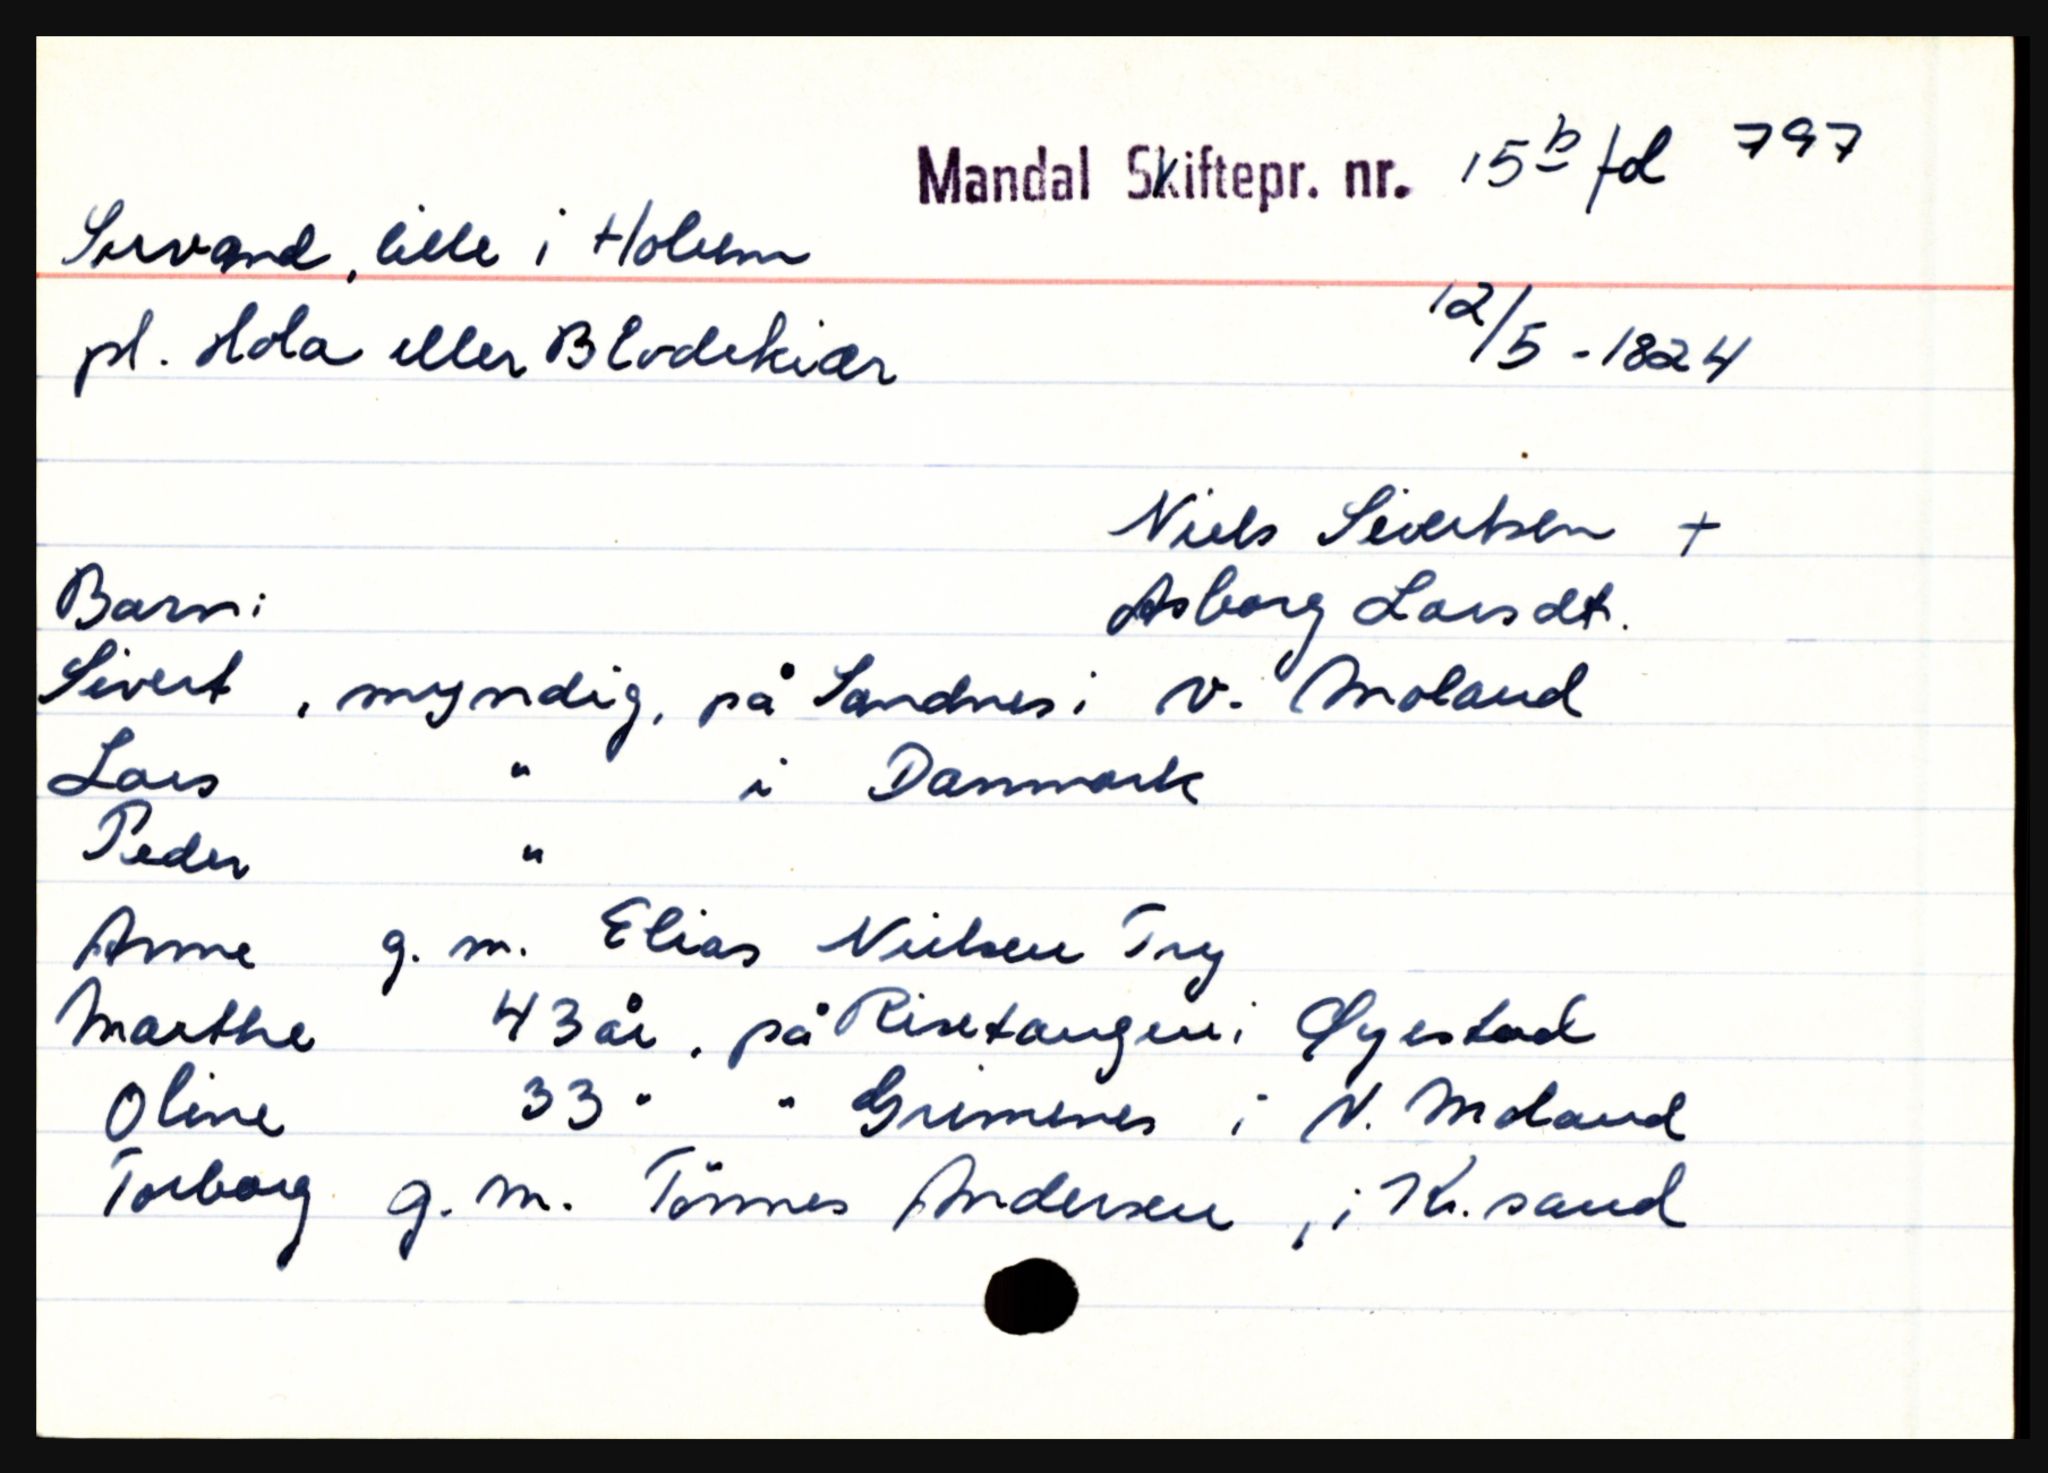 Mandal Skiftepr. nr. 15b fol 797
Servand, lille i Holum
pl. Hola eller Blodekiær 12/5 - 1824
Niels Sivertsen +
Barn: Asborg Larsdt.
Sivert , myndig, på Sandnes i V. Moland
Lars " i Danmark
Peder "
Anne g. m. Elias Nielsen Try
Marthe 43 år , på Risetangen i Øyestad
Oline 33 " " Grimenes i V. Moland
Torborg g. m. Tönnes Andersen , i Kr. sand